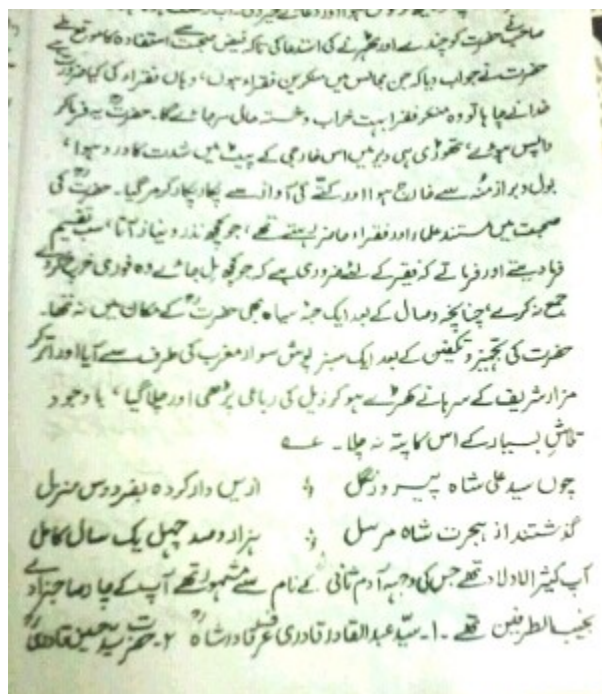 صاحب نے حضرت کو چندے اور ٹھہرنے کی استدعا کی تاکہ فیض صحبت سے استفادہ کا موقع ملے
حضرت نے جواب دیا کہ جن مجالس میں منکرین فقراء ہوں، وہاں فقراء کی کیا ضرورت ہے
خدا نے چاہا تو وہ منکر فقرا بہت خراب و خستہ حال مر جائے گا۔ حضرتؒ یہ فرما کر
واپس ہوئے، تھوڑی ہی دیر میں اس خارجی کے پیٹ میں شدت کا درد ہوا،
بول و براز منہ سے خارج ہوا اور کتے کی آواز سے پکار پکار کر مر گیا۔ حضرتؒ کی
صحبت میں مستند علماء اور فقراء حاضر رہتے تھے، جو کچھ نذر و نیاز آتا، سب تقسیم
فرما دیتے اور فرماتے کہ فقیر کے لئے ضروری ہے کہ جو کچھ مل جائے وہ فوری خرچ کر دے
جمع نہ کرے، چنانچہ وصال کے بعد ایک حبہ سیاہ بھی حضرتؒ کے مکان میں نہ تھا۔
حضرت کی تجہیز و تکفین کے بعد ایک سبز پوش سوار مغرب کی طرف سے آیا اور اتر کر
مزار شریف کے سرہانے کھڑے ہو کر ذیل کی رباعی پڑھی اور چلا گیا، باوجود
تلاشِ بسیار کے اس کا پتہ نہ چلا۔
چوں سید علی شاہ پیر و زنگل ؛ ازیں دار کردہ بفردوس منزل
گذشتند از ہجرت شاہ مرسل ؛ ہزار و صد چہل یک سال کامل
آپ کثیر الاولاد تھے جس کی وجہہ آدم ثانی کے نام سے مشہور تھے آپ کے چار صاحبزادے
نجیب الطرفین تھے۔ ۱۔ سیّد عبدالقادر قادری عرف قادر شاہؒ ۲۔ حضرت سید حسین قادریؒ